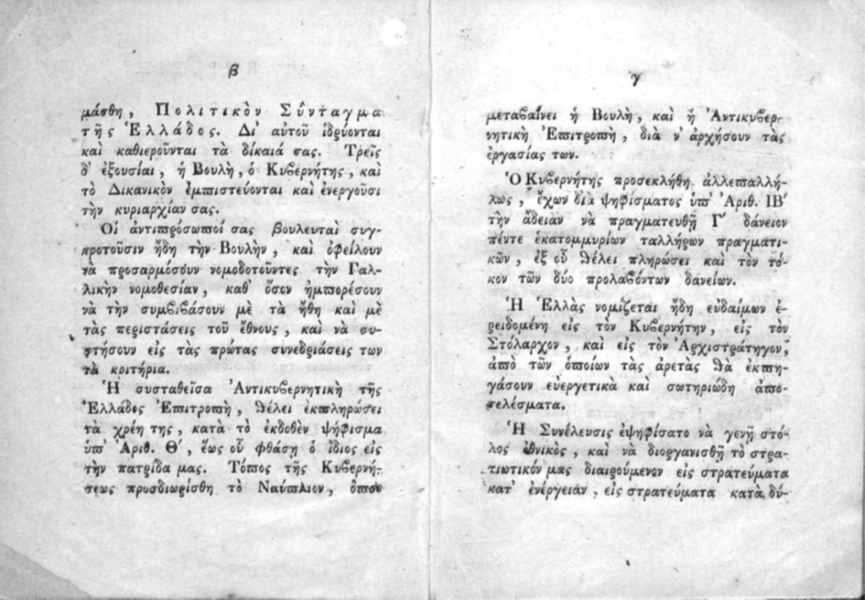 β
μάσθη, Πολιτικὸν Σύνταγμα
τῆς Ἑλλάδος. Δι' αὐτοῦ ἱδρύονται
καὶ καθιεροῦνται τὰ δίκαιά σας. Τρεῖς
δ' ἐξουσίαι, ἡ Βουλὴ, ὁ Κυβερνήτης, καὶ
τὸ Δικανικὸν ἐμπιστεύονται καὶ ἐνεργοῦσι
τὴν κυριαρχίαν σας.
Οἱ ἀντιπρόσωποί σας βουλευταὶ συγ-
κροτοῦσιν ἤδη τὴν Βουλὴν, καὶ ὀφείλουν
νὰ προσαρμόσουν νομοδοτοῦντες τὴν Γαλ-
λικὴν νομοθεσίαν, καθ' ὅσον ἠμπορέσουν
νὰ τὴν συμβιβάσουν μὲ τὰ ἤθη καὶ μὲ
τὰς περιστάσεις τοῦ ἔθνους, καὶ νὰ συ-
στήσουν εἰς τὰς πρώτας συνεδριάσεις των
τὰ κριτήρια.
Ἡ συσταθεῖσα Ἀντικυβερνητικὴ τῆς
Ἑλλάδος Ἐπιτροπὴ, θέλει ἐκπληρώσει
τὰ χρέη της, κατὰ τὸ ἐκδοθὲν ψήφισμα
ὑπ' Ἀριθ. Θ', ἕως οὗ φθάσῃ ὁ ἴδιος εἰς
τὴν πατρίδα μας. Τόπος τῆς Κυβερνή-
σεως προσδιωρίσθη τὸ Ναύπλιον, ὅπου
γ
μεταβαίνει ἡ Βουλὴ, καὶ ἡ Ἀντικυβερ-
νητικὴ Ἐπιτροπὴ, διὰ ν' ἀρχήσουν τὰς
ἐργασίας των.
Ὁ Κυβερνήτης προσεκλήθη ἀλλεπαλλή-
λως, ἔχων διὰ ψηφίσματος ὑπ' Ἀριθ. ΙΒ'
τὴν ἄδειαν νὰ πραγματευθῇ Γ' δάνειον
πέντε ἑκατομμυρίων ταλλήρων πραγματι-
κῶν, ἐξ οὗ θέλει πληρώσει καὶ τὸν τό-
κον τῶν δύο προλαβόντων δανείων.
Ἡ Ἑλλὰς νομίζεται ἤδη εὐδαίμων ἐ-
ρειδομένη εἰς τὸν Κυβερνήτην, εἰς τὸν
Στόλαρχον, καὶ εἰς τὸν Ἀρχιστράτηγον,
ἀπὸ τῶν ὁποίων τὰς ἀρετὰς θὰ ἐκπη-
γάσουν εὐεργετικὰ καὶ σωτηριώδη ἀπο-
τελέσματα.
Ἡ Συνέλευσις ἐψηφίσατο νὰ γενῇ στό-
λος ἐθνικὸς, καὶ νὰ διοργανισθῇ τὸ στρα-
τιωτικόν μας διαιρούμενον εἰς στρατεύματα
κατ' ἐνέργειαν, εἰς στρατεύματα κατὰ δύ-